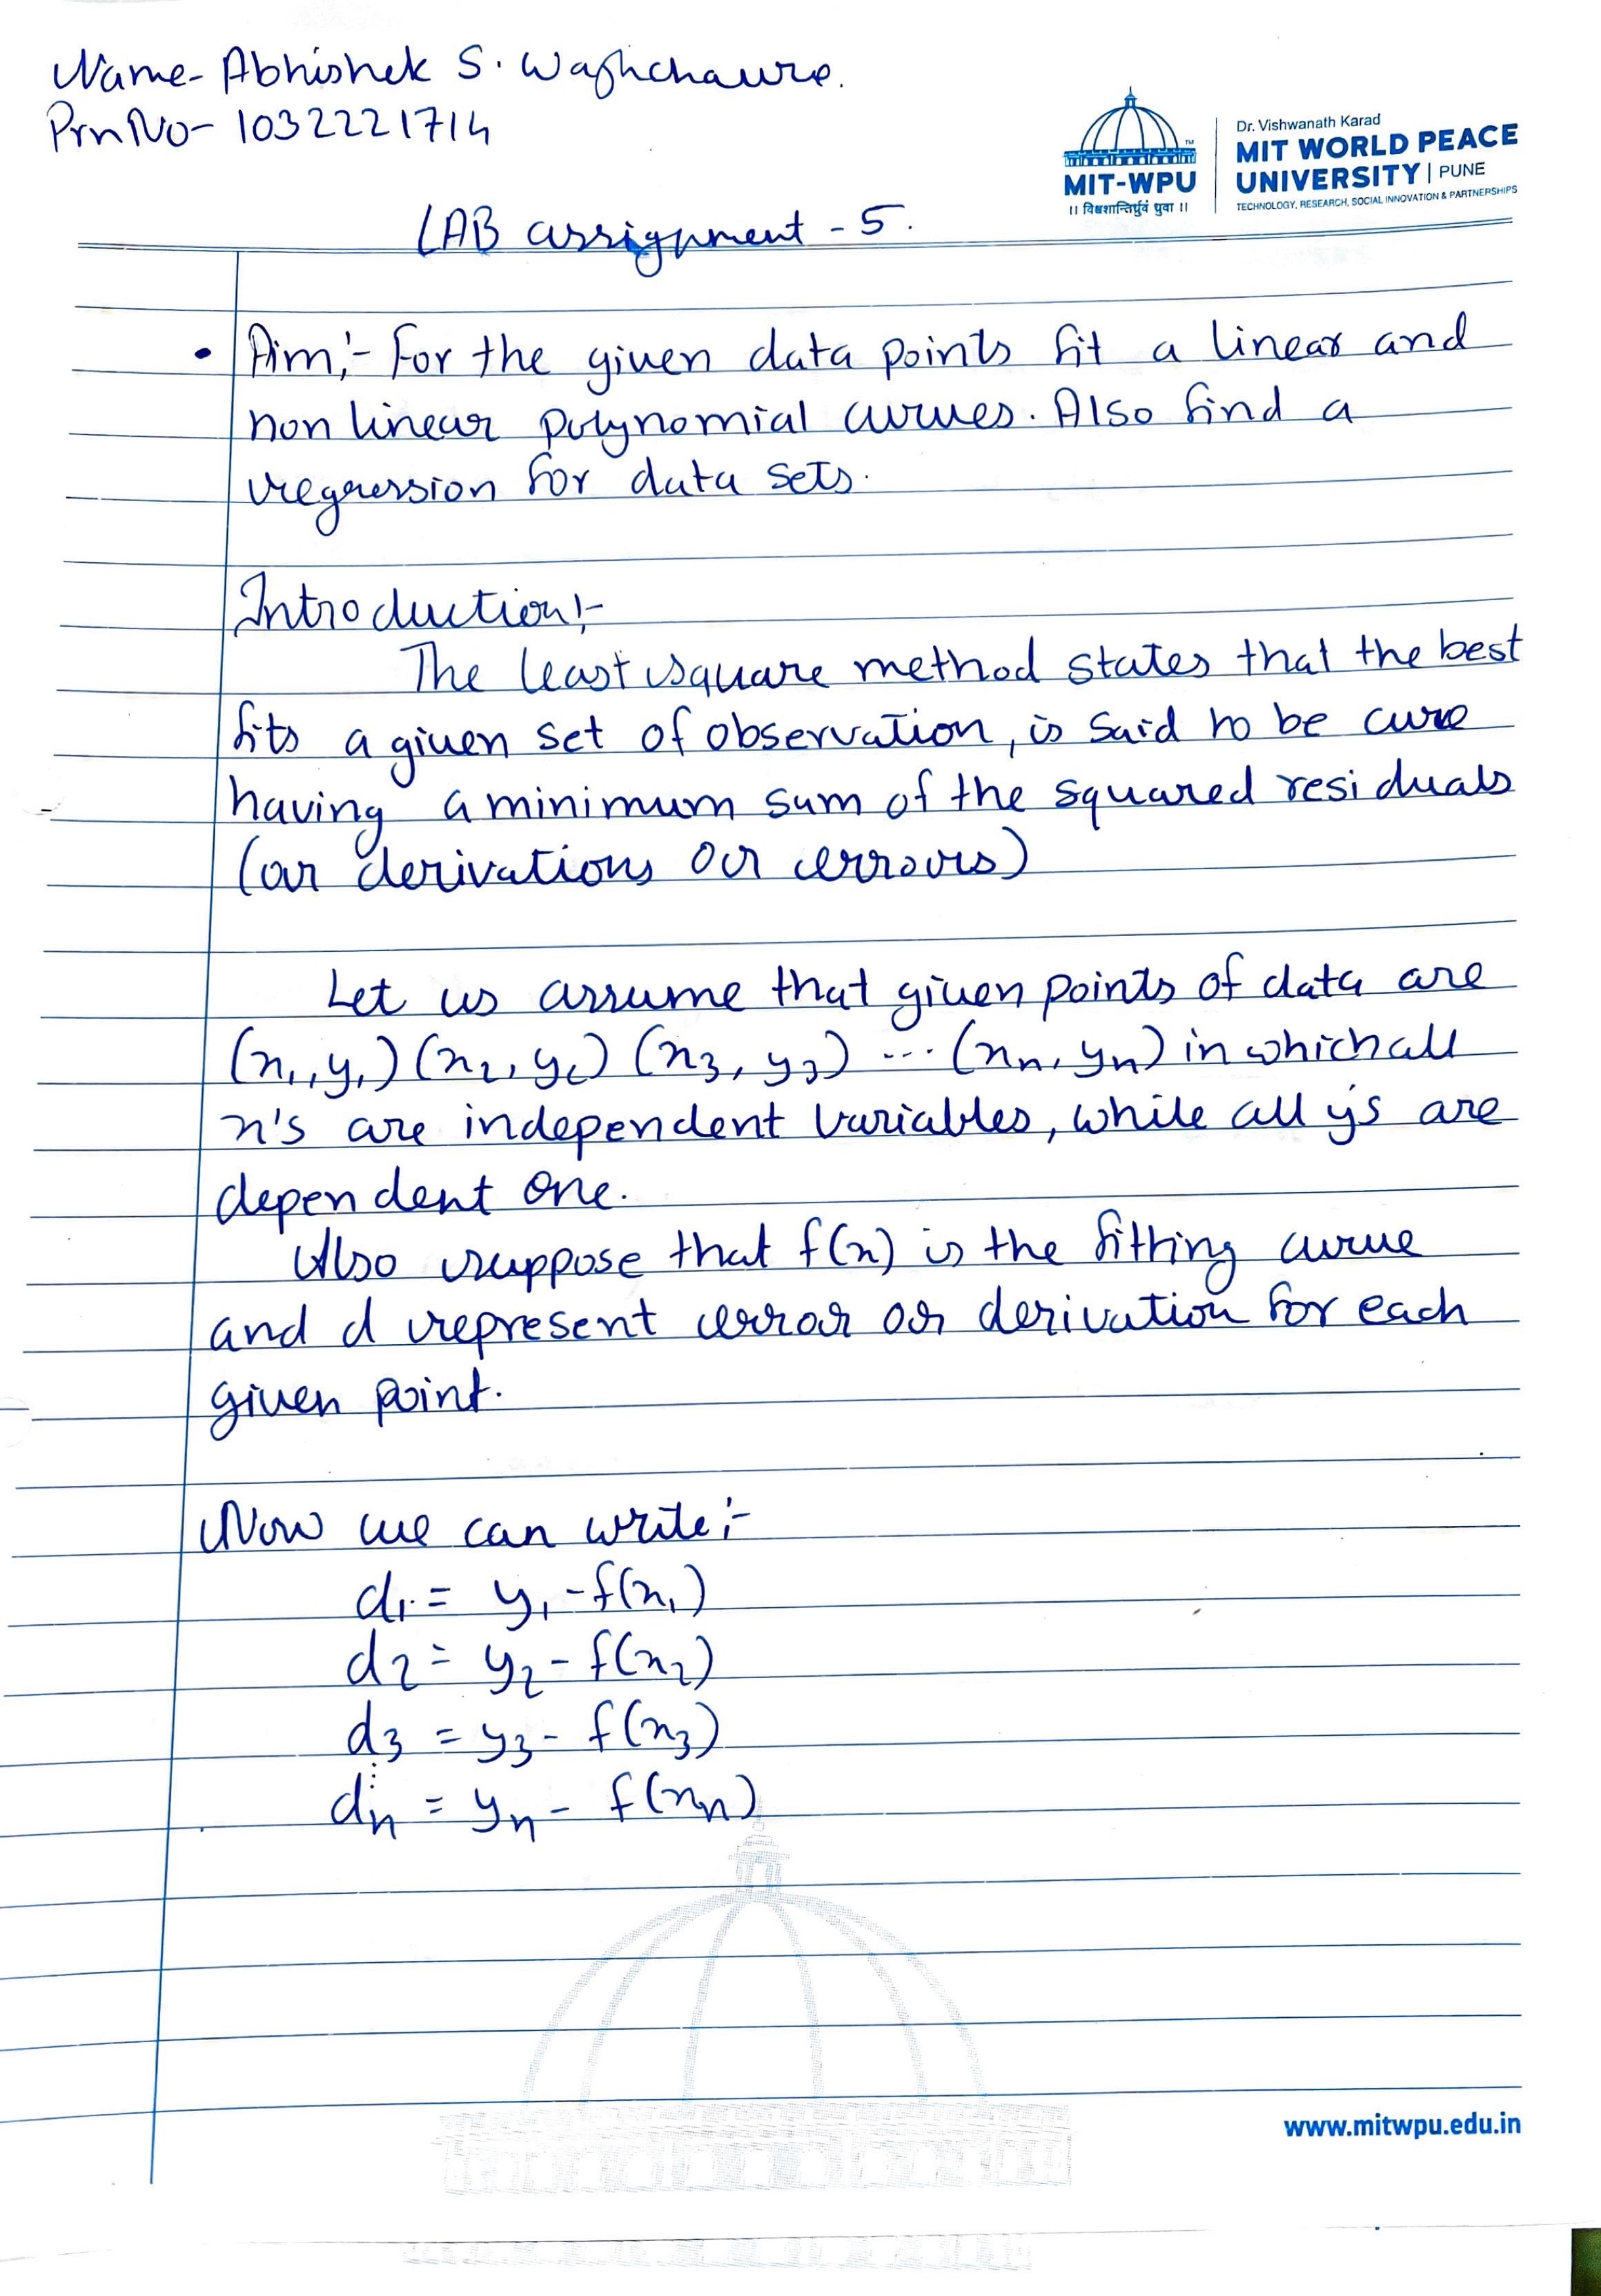 Name- Abhishek S. Waghchaure.
Prn No- 1032221714
Dr. Vishwanath Karad
MIT WORLD PEACE
UNIVERSITY | PUNE
TECHNOLOGY, RESEARCH, SOCIAL INNOVATION & PARTNERSHIPS
MIT-WPU
TM
।। विश्वशान्तिर्ध्रुवं ध्रुवा ।।
LAB assignment - 5.
• Aim:- For the given data points fit a linear and
non linear polynomial curves. Also find a
regression for data sets.
Introduction:-
The least square method states that the best
fits a given set of observation, is said to be curve
having a minimum sum of the squared residuals
(or derivations or errors)
Let us assume that given points of data are
(x₁, y₁) (x₂, y₂) (x₃, y₃) ... (xn, yn) in which all
x's are independent variables, while all y's are
dependent one.
Also suppose that f(x) is the fitting curve
and d represent error or derivation for each
given point.
Now we can write:-
d₁ = y₁ - f(x₁)
d₂ = y₂ - f(x₂)
d₃ = y₃ - f(x₃)
⋮
dn = yn - f(xn)
www.mitwpu.edu.in